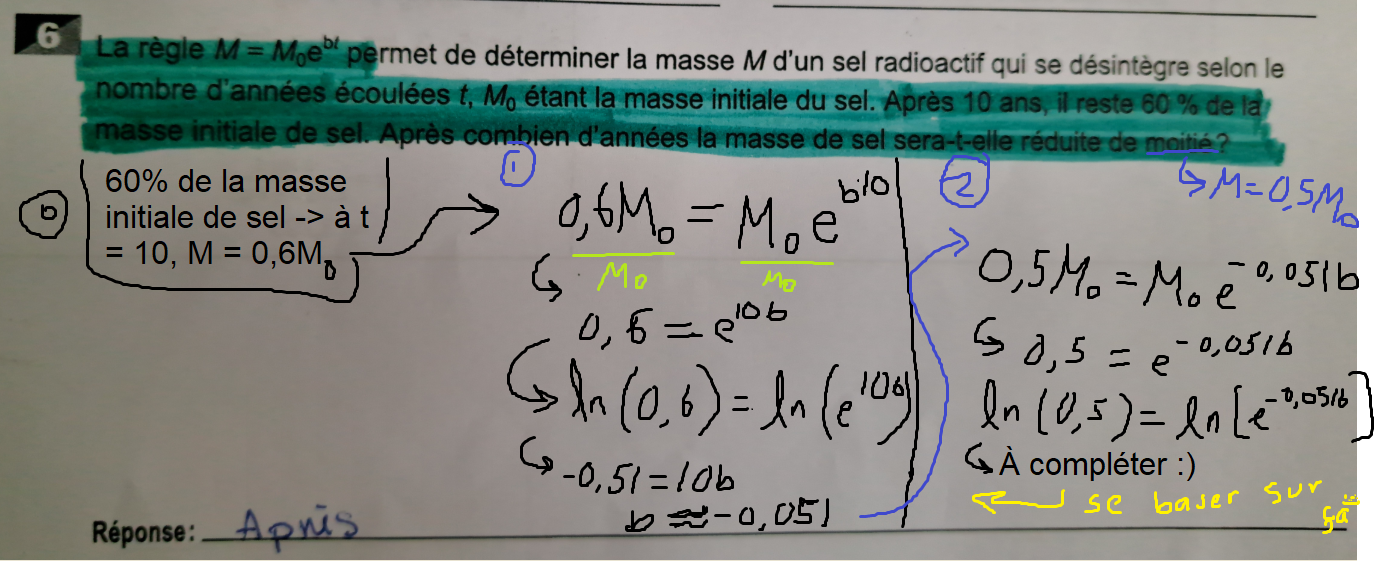 6
La règle M = M₀eᵇᵗ permet de déterminer la masse M d'un sel radioactif qui se désintègre selon le
nombre d'années écoulées t, M₀ étant la masse initiale du sel. Après 10 ans, il reste 60 % de la
masse initiale de sel. Après combien d'années la masse de sel sera-t-elle réduite de moitié?
↳ M = 0,5M₀
b
60% de la masse
initiale de sel -> à t
= 10, M = 0,6M₀
1
0,6M₀ = M₀e^b·10
M₀ M₀
0,6 = e^10b
ln(0,6) = ln(e^10b)
-0,51 = 10b
b ≈ -0,051
2
0,5M₀ = M₀e^-0,051b
0,5 = e^-0,051b
ln(0,5) = ln[e^-0,051b]
À compléter :)
se baser sur
ça
Réponse: Après